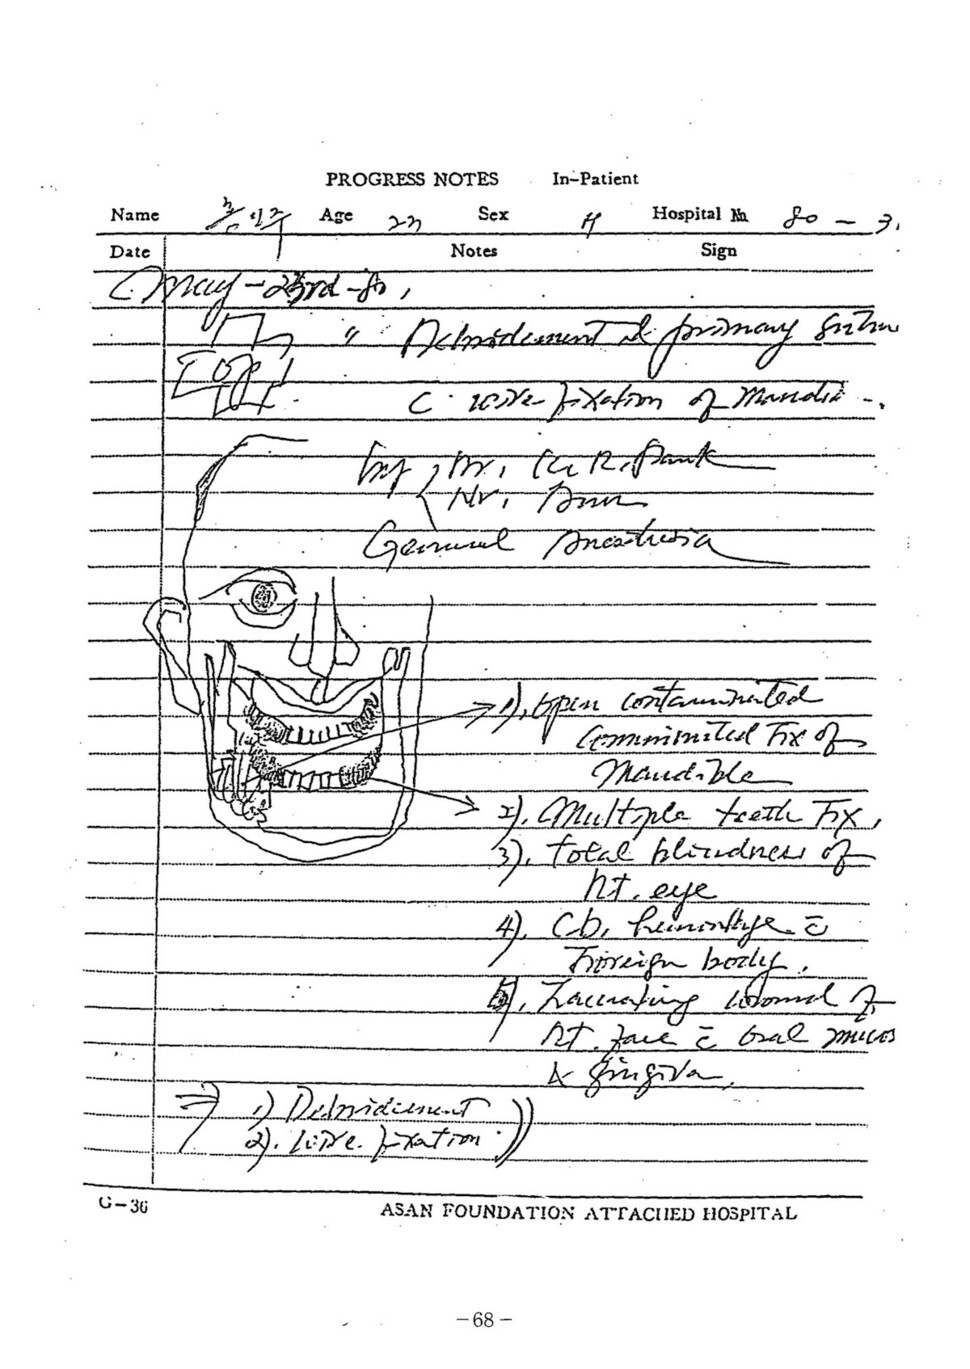 PROGRESS NOTES In-Patient
Name Age 23 Sex Hospital № 80-3.
Date Notes Sign
May-23rd-80,
" Debridement & primary Suture
c̄ wire fixation of Mandi
by, Dr. K. R. Park
General Anesthesia
1). Open contaminated
Comminuted Fx of
Mandible
2). Multiple teeth Fx,
3). total blindness of
Rt. eye
4). Cb, hemorrhage c̄
Foreign body.
5). Lacerating wound of
Rt. face c̄ oral mucos
& gingiva.
⇒ 1) Debridement
2). Wire fixation.
G-36 ASAN FOUNDATION ATTACHED HOSPITAL
-68-